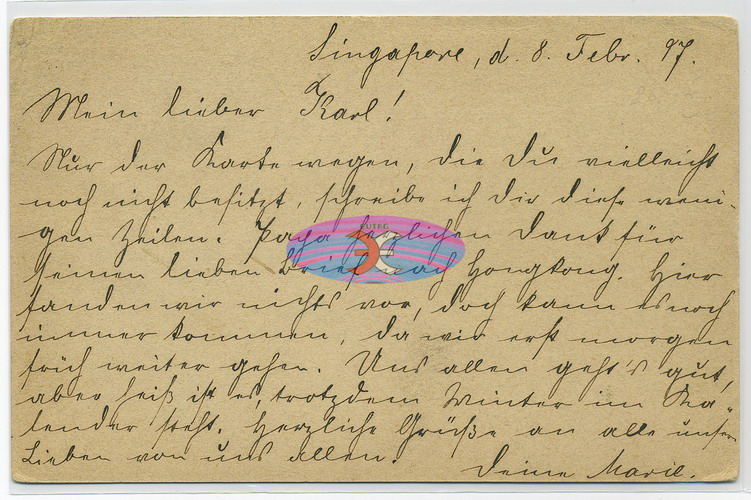 Singapore, d. 8. Febr. 97.
Mein lieber Karl!
Nur der Karte wegen, die Du vielleicht
noch nicht besitzt, schreibe ich Dir diese weni-
gen Zeilen. Papa herzlichen Dank für
seinen lieben Brief nach Hongkong. Hier
fanden wir nichts vor, doch kann es noch
immer kommen, da wir erst morgen
früh weiter gehen. Uns allen geht's gut,
aber heiß ist es, trotzdem Winter im Ka-
lender steht. Herzliche Grüße an alle unsere
Lieben von uns allen. Deine Marie.